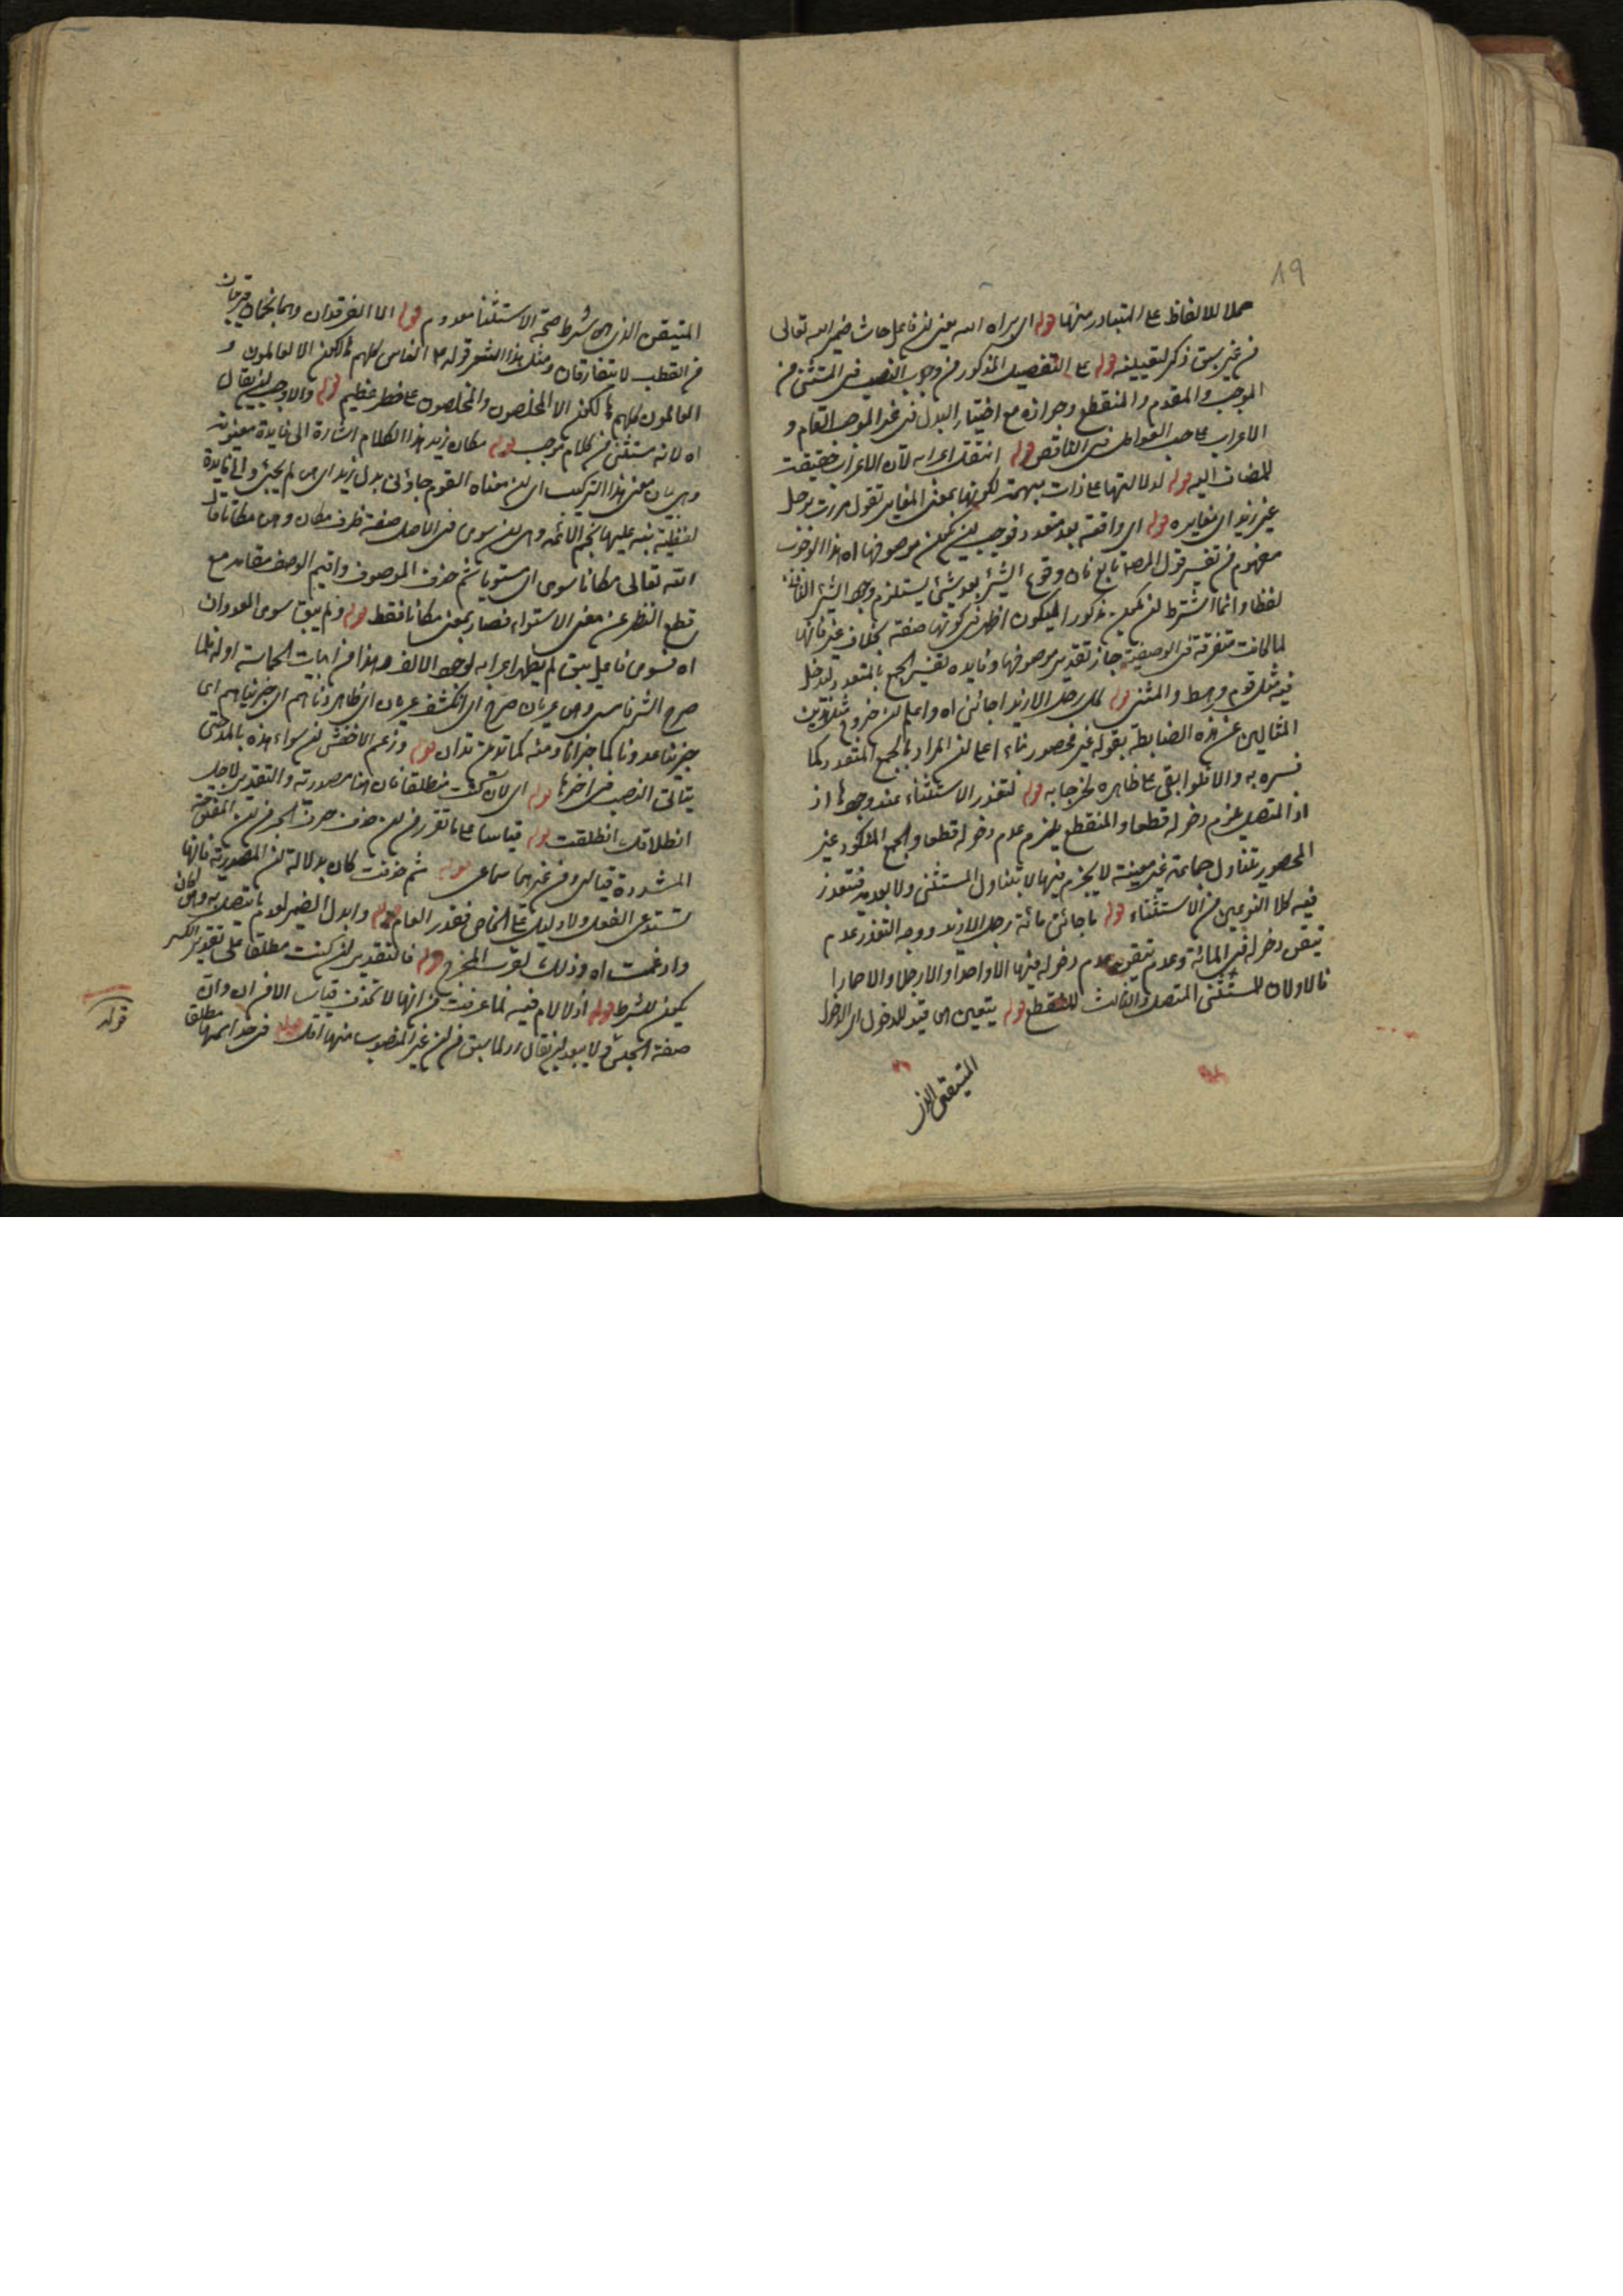 ١٩
حملا للالفاظ على المتبادر منها قوله اى براه الله يعنى ان فاعل حاشا ضمير الله تعالى
من غير سبق ذكر لتعيينه قوله على التفصيل المذكور من وجوب النصب فى المستثنى من
الموجب والمقدم والمنقطع وجوازه مع اختيار البدل فى غير الموجب التام و
الاعراب على حسب العوامل فى الناقص قوله انتقل اعرابه لان الاعراب حقيقة
للمضاف اليه قوله لدلالتها على ذات مبهمة لكونها بمعنى المغاير تقول مررت برجل
غير زيد اى مغايره قوله اى واقعة بعد متعدد فوجب ان يكون موصوفها اه هذا الوجوب
مفهوم من تفسير قول المصـ تابع فان وقوع الشئ بعد شئ يستلزم وجود الشئ
لفظا وانما اشترط ان يكون مذكورا ليكون اظهر فى كونها صفة بخلاف غير فانها
لما كانت متفرقة فى الوصفية جاز تقدير موصوفها وفايده تفسير الجمع بالمتعدد ليدخل
فيه مثل قوم ورهط والمثنى قوله كل رجل الا زيدا جائنى اه واعلم ان خروج مثل هذين
المثالين عن هذه الضابطة بقوله غير محصور بناء على ان المراد بالجمع المتعدد كما
فسره به والا فلو ابقى على ظاهره لخرجا به قوله لتعذر الاستثناء عند وجودها اذ
اذ المتصل يلزم دخوله قطعا والمنقطع يلزم عدم دخوله قطعا والجمع المنكور غير
المحصور يتناول جماعة غير معينة لا يجزم فيها لا بتناول المستثنى ولا بعدمه فتعذر
فيه كلا النوعين من الاستثناء قوله ما جائنى مائة رجل الا زيد ووجه التعذر عدم
تيقن دخوله فى المائة وعدم تيقن عدم دخوله فيها الا واحدا والا رجلا والا حمارا
فالاولان للمستثنى المتصل والثالث للمنقطع قوله يتعين اى قيد للدخول اى الدخول
المتيقن الذى
المتيقن الذى هو شرط صحة الاستثنا معدوم قوله الا الفرقدان وهما نجمان قريبان
من القطب لا يتفارقان ومثل هذا الشعر قوله ع الناس كلهم هالكون الا العالمون و
العالمون كلهم هالكون الا المخلصون والمخلصون على خطر عظيم قوله والاوجب ان يقال
اه لانه مستثنى من كلام موجب قوله مكان زيد هذا الكلام اشارة الى فايدة معنوية
وهى بيان معنى هذا التركيب اى ان معناه القوم جاؤنى بدل زيد اى هو لم يجئ والى فايدة
لفظية نبه عليها نجم الائمة وهى ان سوى فى الاصل صفة ظرف مكان وهو مكانا قال
الله تعالى مكانا سوى اى مستويا ثم حذف الموصوف واقيم الوصف مقامه مع
قطع النظر عن معنى الاستواء فصار بمعنى مكانا فقط قوله ولم يبق سوى العدوان
اه فسوى فاعل يبق لم يظهر اعرابه لوجود الالف وهذا من ابيات الحماسة اوله فلما
صرح الشر فامسى وهو عريان صرح اى انكشف عريان اى ظاهر دناهم اى جزيناهم اى
جزينا عدونا كما جزانا ومنه كما تدين تدان قوله وزعم الاخفش ان سواء هذه بالمد حتى
يتأتى النصب فى اخرها قوله اى لان كنت منطلقا فان هنا مصدرية والتقدير لاجل
انطلاقك انطلقت قوله قياسا على ما تقرر من ان حذف حرف الجر من ان المفتوحة
المشددة قياس وفى غيرهما سماعى قوله ثم حذفت كان بدلالة ان المصدرية فانها
تستدعى الفعل ولا دليل على الخاص فقدر العام قوله وابدل الضمير لعدم ما يتصل به وهو كان
وادغمت اه وذلك لقرب المخرج قوله فالتقدير ان كنت منطلقا على تقدير الكسر
يكون للشرط قوله اذ لا لام فيه لما عرفت من انها لا تحذف قياسا الا فى ان وان
صفة الجنس ولا يبعد ان يقال لما سبق من ان غير المنصوب منها اقل قوله فى حد اسمها مطلقا
قوله